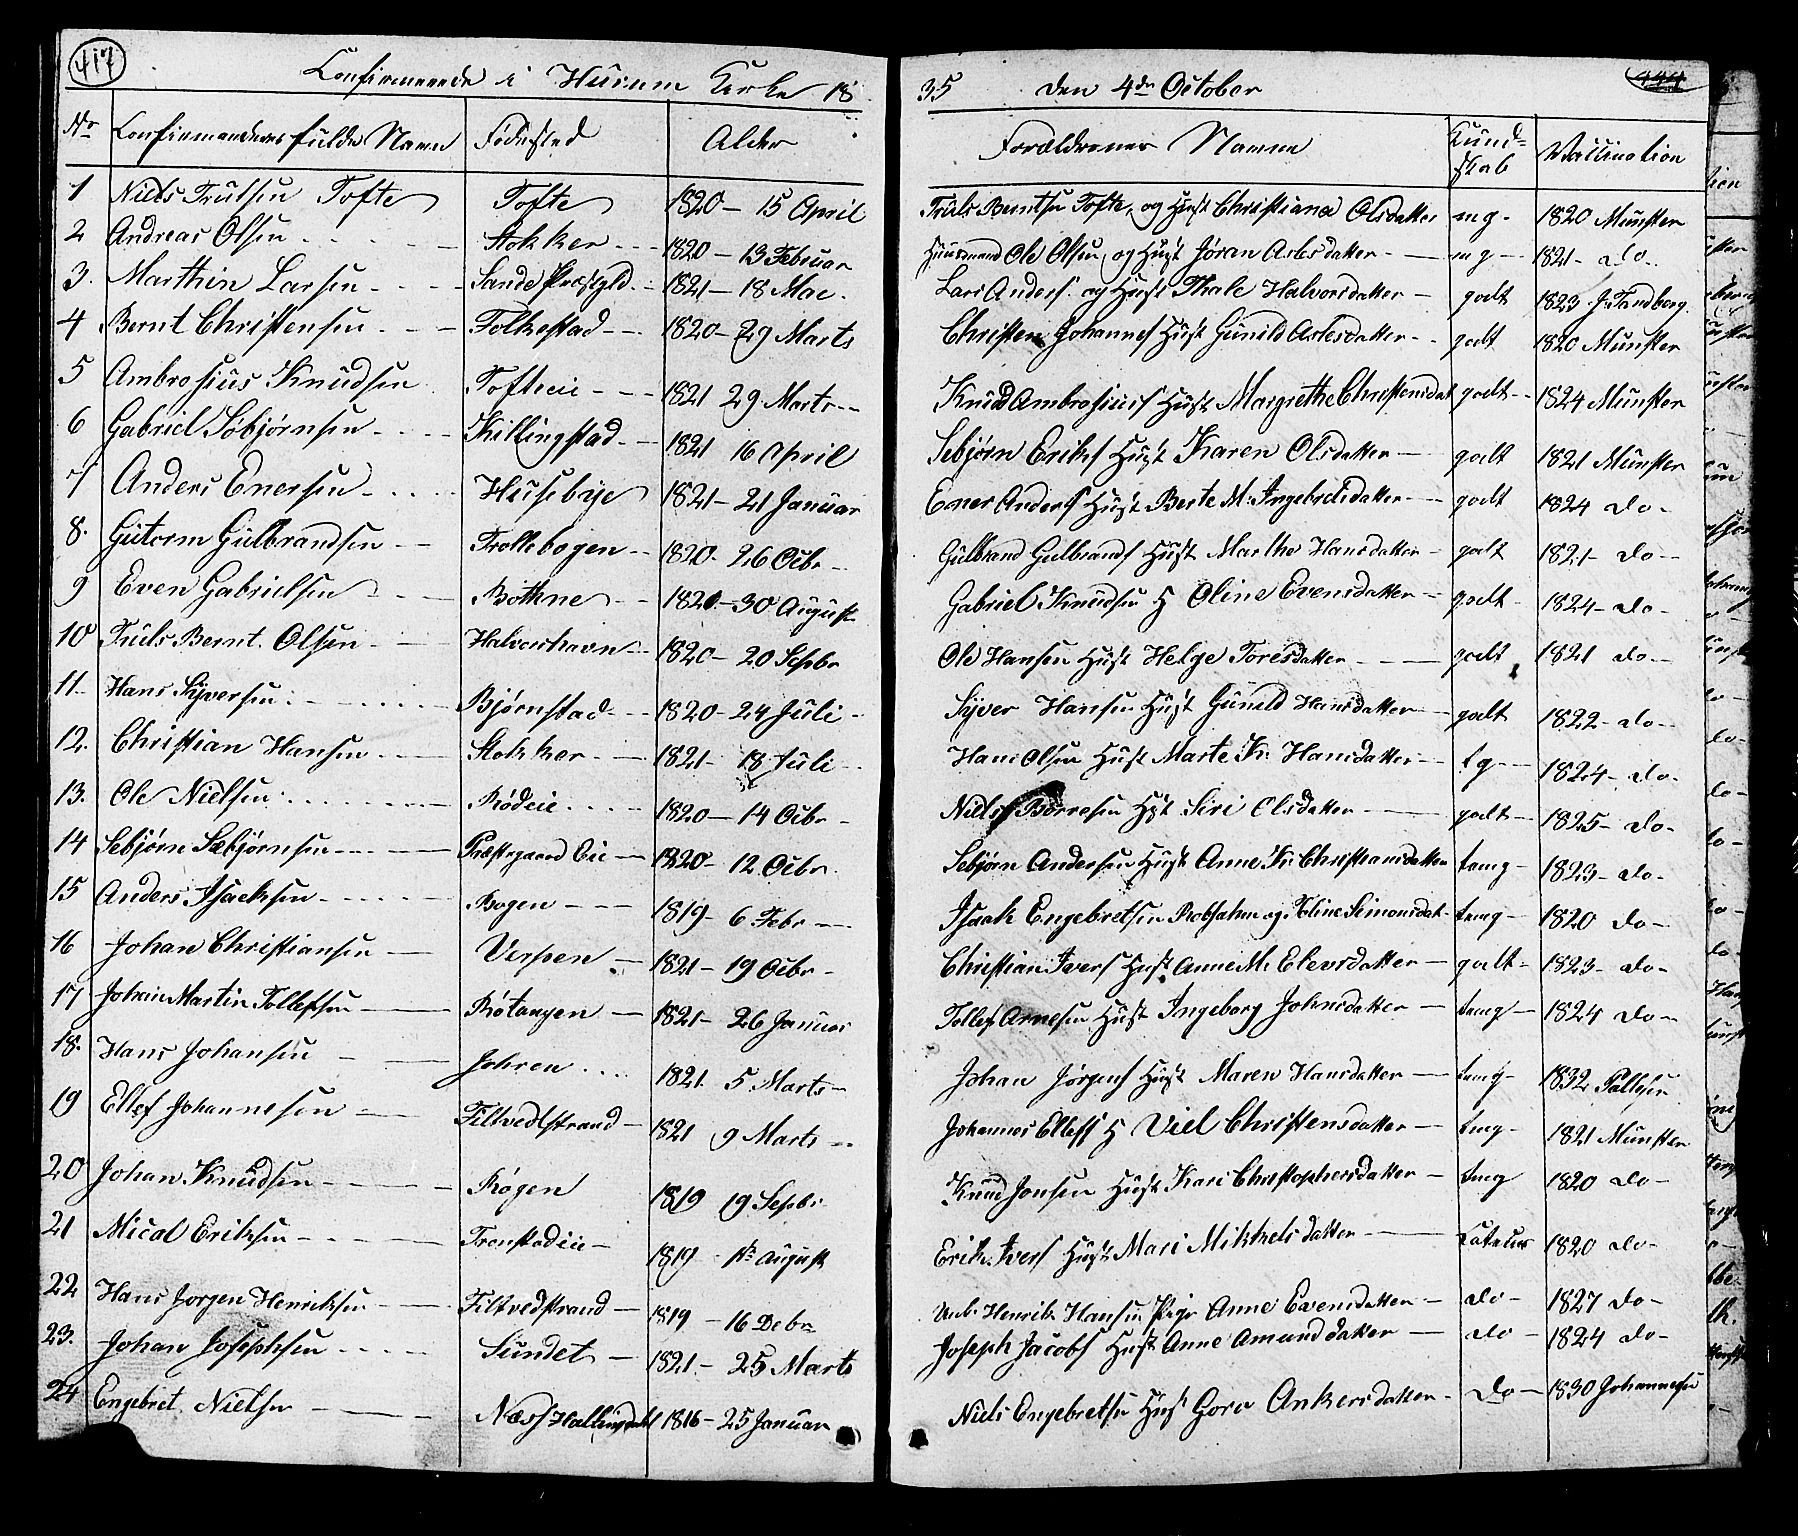 417
Confirmerede i Hurum Kirke 1835 den 4de October
No Confirmandernes fulde Navne Fødested Alder Forældrenes Navne Kundskab Vaccination
1 Niels Trulsen Tofte Tofte 1820 – 15 April Truls Berntsen Tofte og Hust Christiane Olsdatter mg. 1820 Munster
2 Andreas Olsen Stokker 1820 – 13 Februar Huusmand Ole Olsen og Hust Jøran Aslesdatter mg 1821 – do
3. Marthin Larsen Sande Præstgld. 1821 – 18 Mae. Lars Anders. og Hust Thale Halvorsdatter godt 1823 J. Tandberg
4 Bernt Christensen Folkestad 1820 – 29 Marts Christen Johannes Hust Gunild Aslesdatter godt 1820 Munster
5 Ambrosius Knudsen Tofteeie 1821 29 Marts Knud Ambrosius Hust Margrethe Christensdat godt 1824 Munster
6 Gabriel Søbjørnsen Killingstad 1821 16 April Sebjørn Eriks Hust Karen Olsdatter godt 1821 Munster
7 Anders Enersen Husebye 1821 – 21 Januar Ener Anders Hust Berte M. Ingebretsdatter godt 1824 do
8. Gutorm Gulbrandsen Trollebogen 1820. 26 Octbr Gulbrand Gulbrands Hust Marthe Hansdatter godt 1821 – do
9 Even Gabrielsen Bothne 1820. – 30 August Gabriel Knudsen H Oline Evensdatter godt 1824 – do
10 Truls Bernt. Olsen Halvorshavn 1820 – 20 Sepbr Ole Hansen Hust Helge Toresdatter godt 1821 do
11. Hans Syversen Bjørnstad 1820 – 24 Juli Syver Hansen Hust Gunild Hansdatter godt 1822 – do
12. Christian Hansen Stokker 1821 – 18 Juli Hans Olsen Hust Marte K. Hansdatter tg 1824 – do
13. Ole Nielsen Rødeie 1820 – 14 Octbr Niels Børresen Hust Siri Olsdatter godt 1825 – do
14 Sebjørn Sebjørnsen Præstegaard Eie 1820 – 12 Octbr. Sebjørn Andersen Hust Anne K. Christiansdatter temg 1823 – do
15 Anders Isacksen Bogen 1819 – 6 Febr Isaak Engebretsen Robsahm og Oline Simonsdat temg 1820 do
16 Johan Christiansen Verpen 1821 – 19 Octbr Christian Ivers Hust Anne M. Elevsdatter godt 1823 – do
17 Johan Martin Tollefsen Røtangen 1821 – 26 Januar Tollef Arnesen Hust Ingeborg Johnsdatter temg 1824 do
18. Hans Johansen Johren 1821. 5 Marts Johan Jørgens Hust Maren Hansdatter temg 1832 Pallesen
19 Ellef Johannesen Filtvedtstrand 1821 9 Marts Johannes Ellefs H Viel Christensdatter tmg 1821 Munster
20 Johan Knudsen Røgen 1819 19 Sepbr Knud Jonsen Hust Kari Christophersdatter tmg 1820 do
21 Mical Eriksen Tronstadeie 1819 1ste August Erik. Ivers Hust Mari Mikkelsdatter 1820 do
22 Hans Jørgen Henriksen Filtvedstrand 1819 – 16 Debr Henrik Hansen Pige Anne Evensdatter do 1827 do
23. Johan Josephsen Sundet 1821 – 25 Marts Joseph Jacobs Hust Anne Amundsdatter do 1824 do
24 Engebret Nielsen Næss Hallingdahl 1816 – 25 Januar Niels Engebretsen Hust Goro Ankersdatter do 1830 Johannesen